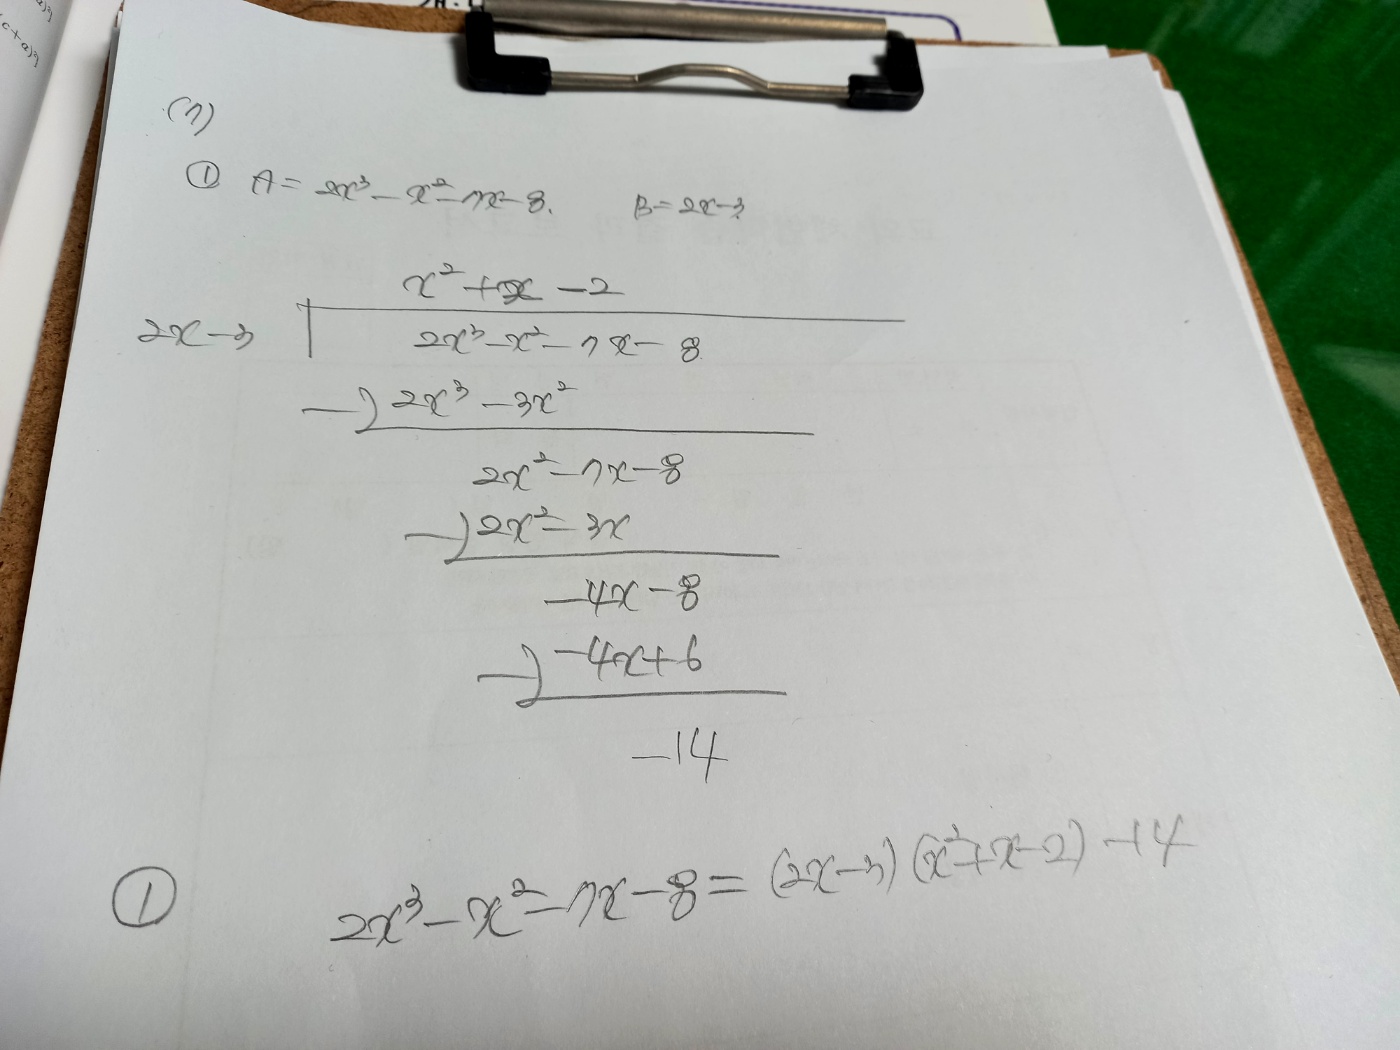 (7)
① A = 2x³ - x² - 7x - 8. B = 2x - 3
x² + x - 2
2x - 3 2x³ - x² - 7x - 8
-) 2x³ - 3x²
2x² - 7x - 8
-) 2x² - 3x
-4x - 8
-) -4x + 6
-14
① 2x³ - x² - 7x - 8 = (2x - 3)(x² + x - 2) - 14